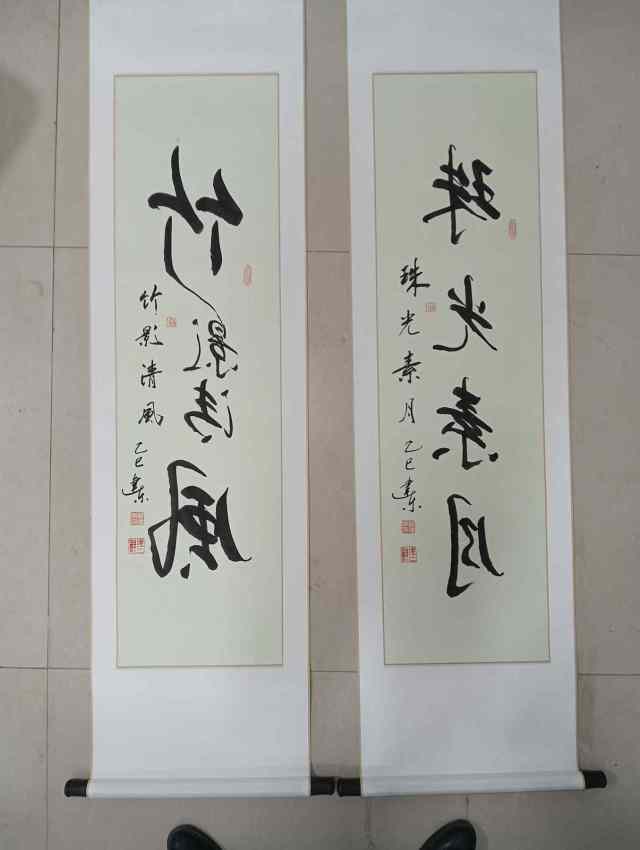 珠光素月
珠光素月 乙巳
竹影清風
竹影清風 乙巳